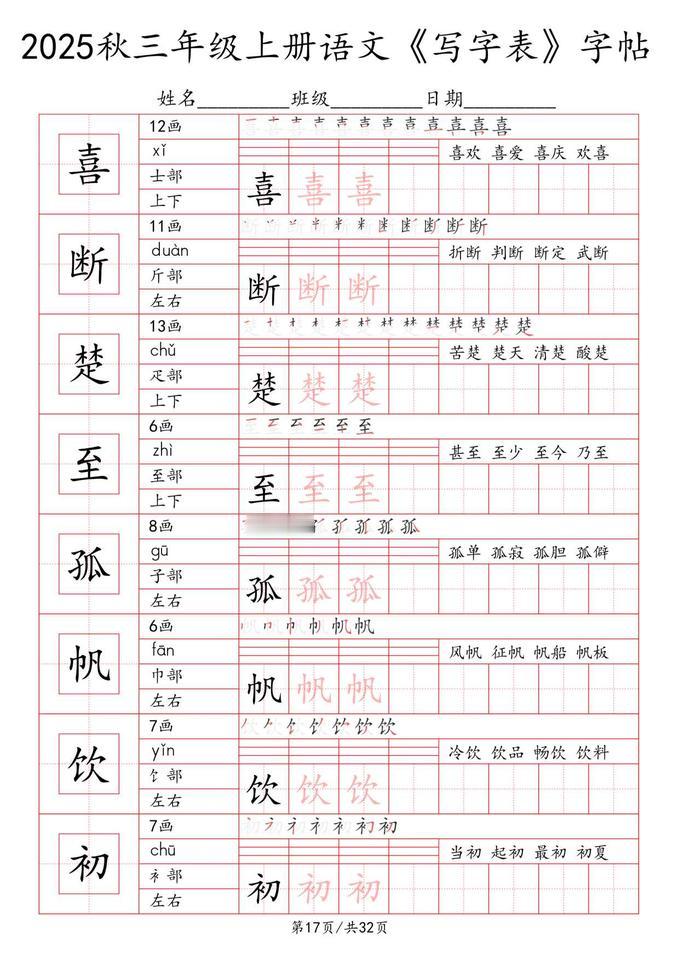 2025秋三年级上册语文《写字表》字帖
姓名_________班级_________日期_________
喜
12画
xǐ
喜欢 喜爱 喜庆 欢喜
士部
上下
喜 喜 喜
断
11画
duàn
折断 判断 断定 武断
斤部
左右
断 断 断
楚
13画
chǔ
苦楚 楚天 清楚 酸楚
疋部
上下
楚 楚 楚
至
6画
zhì
甚至 至少 至今 乃至
至部
上下
至 至 至
孤
8画
gū
孤单 孤寂 孤胆 孤僻
子部
左右
孤 孤 孤
帆
6画
fān
风帆 征帆 帆船 帆板
巾部
左右
帆 帆 帆
饮
7画
yǐn
冷饮 饮品 畅饮 饮料
饣部
左右
饮 饮 饮
初
7画
chū
当初 起初 最初 初夏
衤部
左右
初 初 初
第17页/共32页